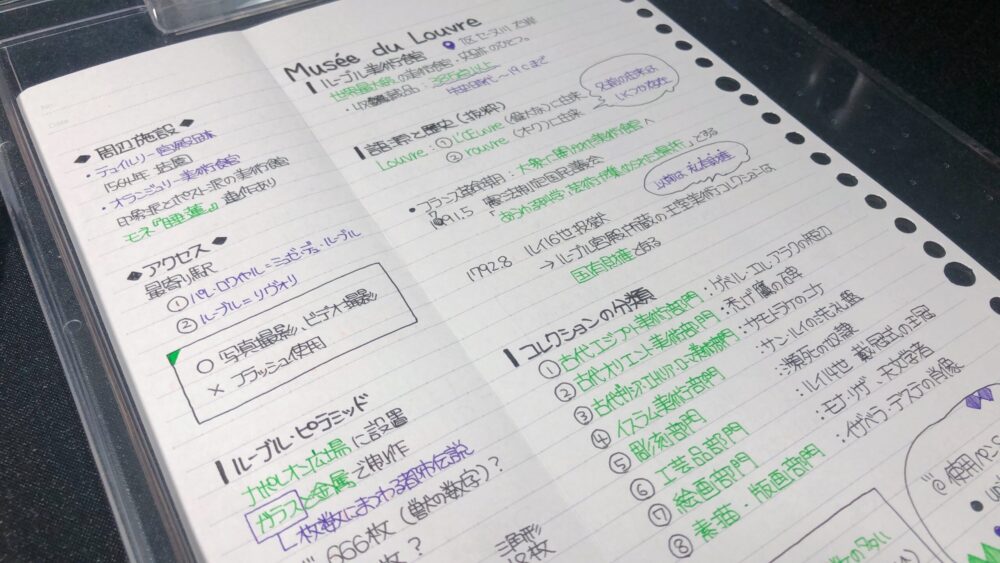 Musée du Louvre
ルーブル美術館 1区セーヌ川右岸
世界最大級の美術館・史跡のひとつ。
・収蔵品：
語源と歴史（抜粋）
Louvre：① L'Œuvre（偉大な）に由来
② rouvre（オーク）に由来
・フランス革命期：大衆に開かれた美術館へ
1791.5 憲法制定国民議会
「あらゆる科学、芸術作品の集められる場所」とする
以前は私有財産
1792.8 ルイ16世投獄
→ルーブル宮殿所蔵の王室美術コレクションは
国有財産となる
コレクションの分類
① 古代エジプト美術部門：ゲベル・エル・アラクの短刀
② 古代オリエント美術部門：禿げ鷹の碑
③ 古代ギリシア・エトルリア・ローマ美術部門：サモトラケのニケ
④ イスラム美術部門：サン・ルイの洗礼盤
⑤ 彫刻部門：瀕死の奴隷
⑥ 工芸品部門：ルイ15世 戴冠式の王冠
⑦ 絵画部門：モナ・リザ、天文学者
⑧ 素描・版画部門：イザベラ・デステの肖像
◆周辺施設◆
・テュイルリー宮殿
1564年
・オランジュリー美術館
印象派とポスト派の美術館
モネ『睡蓮』連作あり
◆アクセス◆
最寄り駅
① パレ・ロワイヤル＝ミュゼ・デュ・ルーブル
② ルーブル＝リヴォリ
○ 写真撮影・ビデオ撮影
× フラッシュ使用
ルーブル・ピラミッド
ナポレオン広場に設置
ガラスと金属で制作
枚数にまつわる都市伝説
666枚（獣の数字）？
枚？
三角形
枚
@使用ペン
の多い